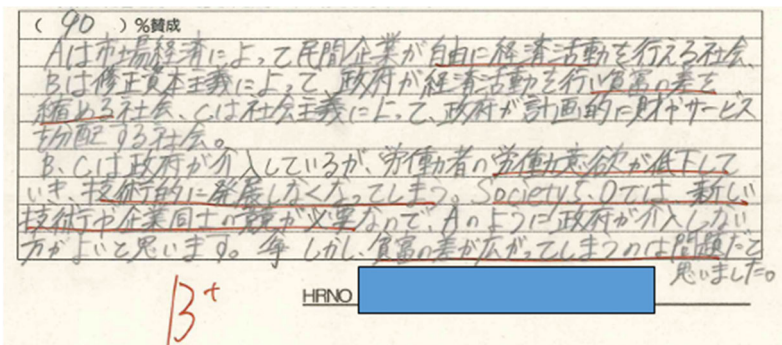 （ 90 ）％賛成
Aは市場経済によって民間企業が自由に経済活動を行える社会、
Bは修正資本主義によって、政府が経済活動を行い貧富の差を
縮める社会、Cは社会主義によって、政府が計画的に財やサービス
を分配する社会。
B、Cは政府が介入しているが、労働者の労働意欲が低下して
いき、技術的に発展しなくなってしまう。Society5.0では 新しい
技術や企業同士の競が必要なので、Aのように政府が介入しない
方がよいと思います。争 しかし、貧富の差が広がってしまうのは問題だと
思いました。
B+
HRNO